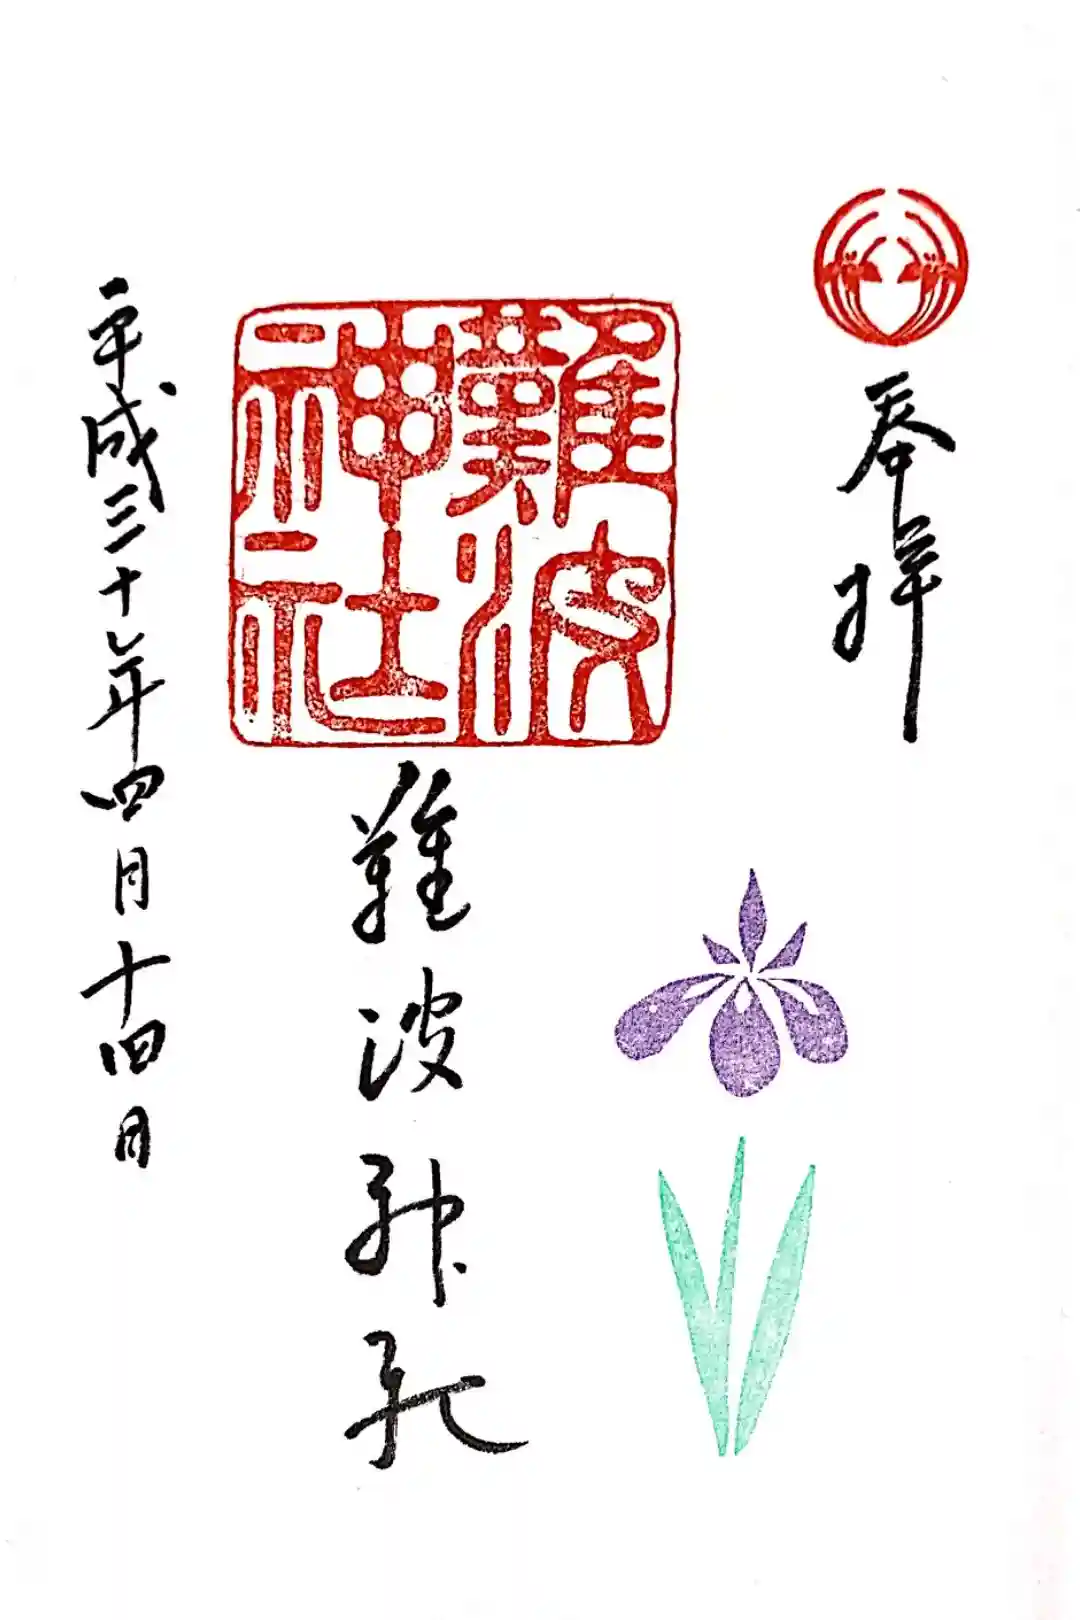 奉拝
難波神社
難波神社
平成三十年四月十四日